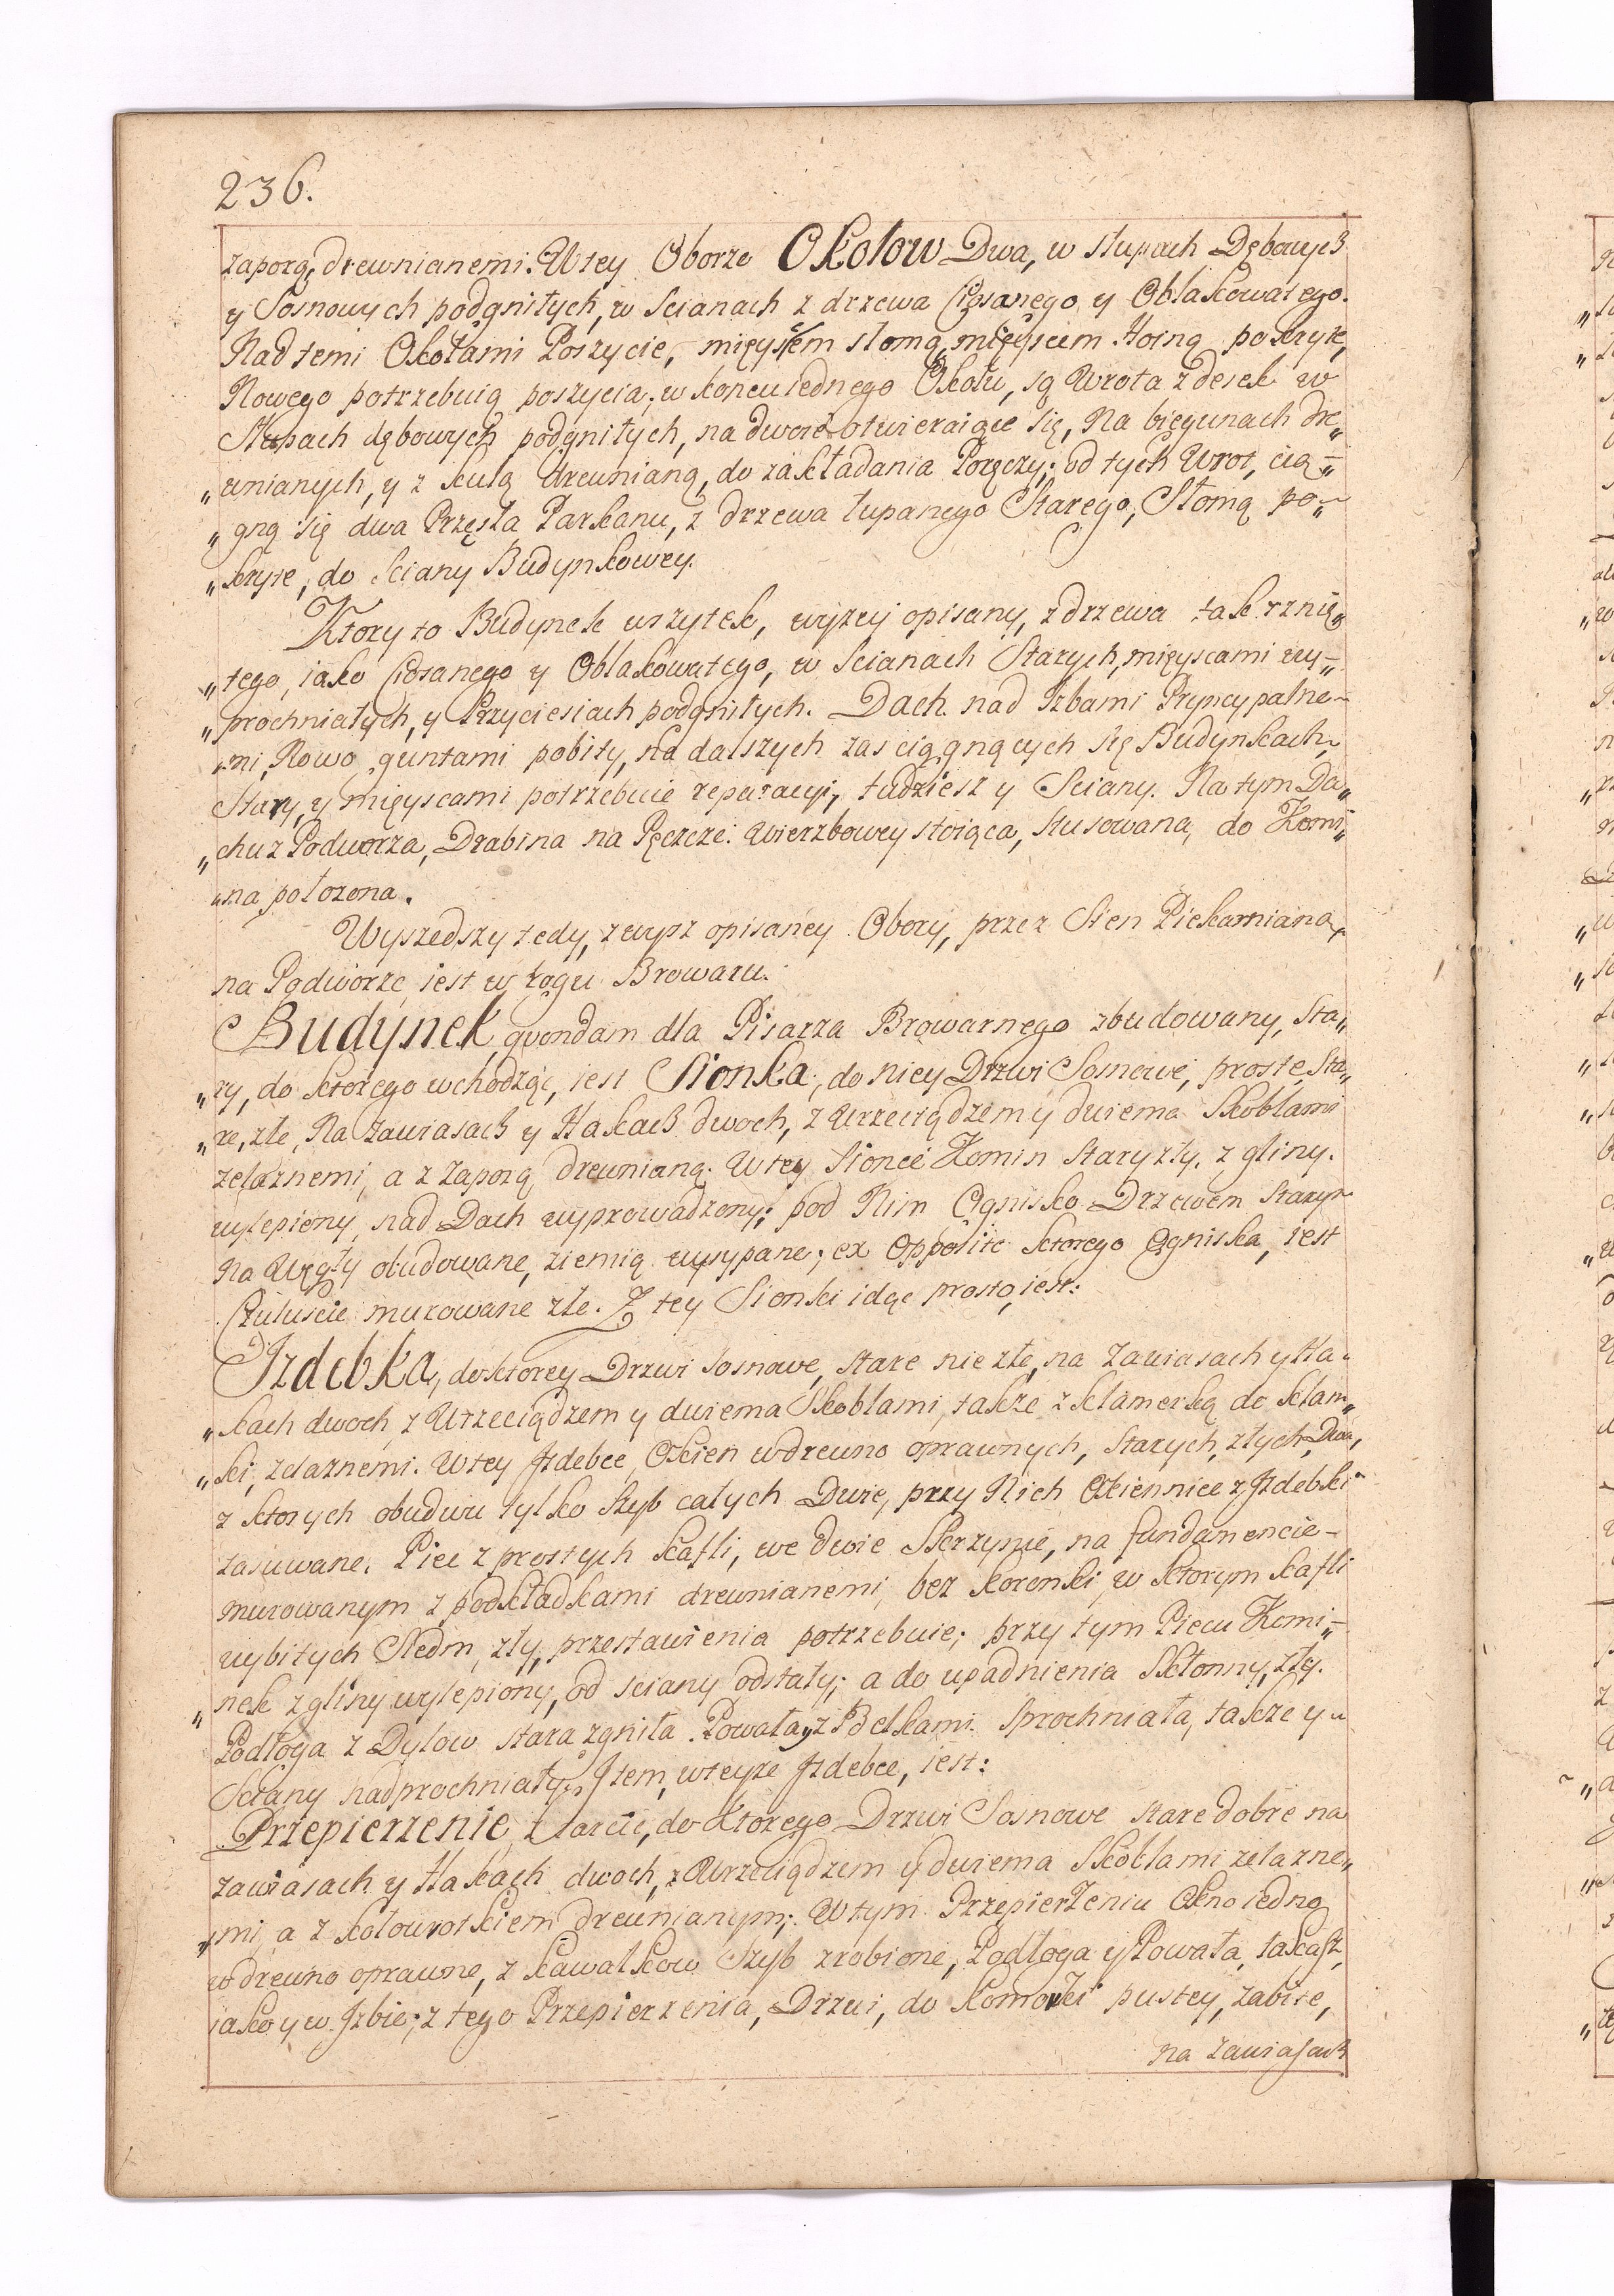 236.
zaporą, drewnianemi. W tey Oborze Okołow Dwa, w słupach Dębowych
y Sosnowych podgniłych, w Scianach z drzewa Ciosanego y Oblakowatego.
Nad temi Okołami Poszycie, mięyscem słomą, mięyscem Hoiną pokryte,
Nowego potrzebuią poszycia; w koncu iednego Okołu, są Wrota z desek w
Słupach dębowych podgniłych, na dwoie otwieraiące się, Na biegunach dre„
„wnianych, y z kulą drewnianą, do zakładania Poręczy; od tych Wrot, cią„
„gną się dwa Przęsła Parkanu, z drzewa łupanego Starego, Słomą po„
„kryte, do Sciany Budynkowey.
Ktory to Budynek wszytek, wyzey opisany, z drzewa tak rznię„
„tego, iako Ciosanego y Oblakowatego, w Scianach Starych, mięyscami wy„
„prochniałych, y Przyciesiach podgniłych. Dach nad Izbami Pryncypalne„
„mi, Nowo guntami pobity, na dalszych zas ciągnących się Budynkach,
Stary, y mięyscami potrzebuie reparacyi, tudziesz y Sciany. Na tym Da„
„chu z Podworza, Drabina na Pęczcze Wierzbowey stoiąca, słusowana, do Komi„
„na położona.
Wyszedszy tedy, z wyż opisaney Obory, przez Sien Piekarnianą,
na Podworze iest w rogu Browaru.
Budynek, qvondam dla Pisarza Browarnego zbudowany, Sta„
„ry, do ktorego wchodząc, iest Sionka; do niey Drzwi Sosnowe, proste, sta„
„re, złe, Na Zawiasach y Hakach dwoch, z Wrzeciądzem y dwiema Skoblami
zelaznemi, a z Zaporą drewnianą. W tey Sionce Komin Stary zły, z gliny.
wylepiony, nad Dach wyprowadzony; pod Nim Ognisko Drzewem Starym
na Węgły obudowane, ziemią wysypane; ex Opposite ktorego Ogniska, iest
Czuluscie murowane złe. Z tey Sionki idąc prosto, iest:
Izdebka, do ktorey Drzwi sosnowe, stare nie złe, na Zawiasach y Ha„
„kach dwoch, z Wrzeciądzem y dwiema Skoblami, takze z klamerką do klam„
„ki, zelaznemi. W tey Izdebce, Okien w drewno oprawnych, Starych, złych, Dwa,
z ktorych obudwu tylko Szyb całych Dwie, przy Nich Okiennice z Izdebki
zasuwane. Piec z prostych kafli, we dwie Skrzynie, na fundamencie
murowanym z podkładkami drewnianemi, bez koronki, w ktorym kafli
wybitych Siedm, zły, przestawienia potrzebuie; przy tym Piecu Komi„
„nek z gliny wylepiony, od sciany odstały; a do upadnienia Skłonny, zły.
Podłoga z Dylow stara zgniła. Powała, z Belkami Sprochniała, takze y
Sciany nadprochniały. Item, w teyze Izdebce, iest:
Przepierzenie, z tarcic, do Ktorego Drzwi Sosnowe stare dobre na
zawiasach y Hakach dwoch, z Wrzeciądzem y dwiema Skoblami zelazne„
„mi, a z kołowrotkiem drewnianym; W tym Przepierzeniu Okno iedno
w drewno oprawne, z kawałkow Szyb zrobione, Podłoga y Powała, takaż,
iako y w Izbie; z tego Przepierzenia, Drzwi, do Komorki pustey, zabite,
na zawiasach